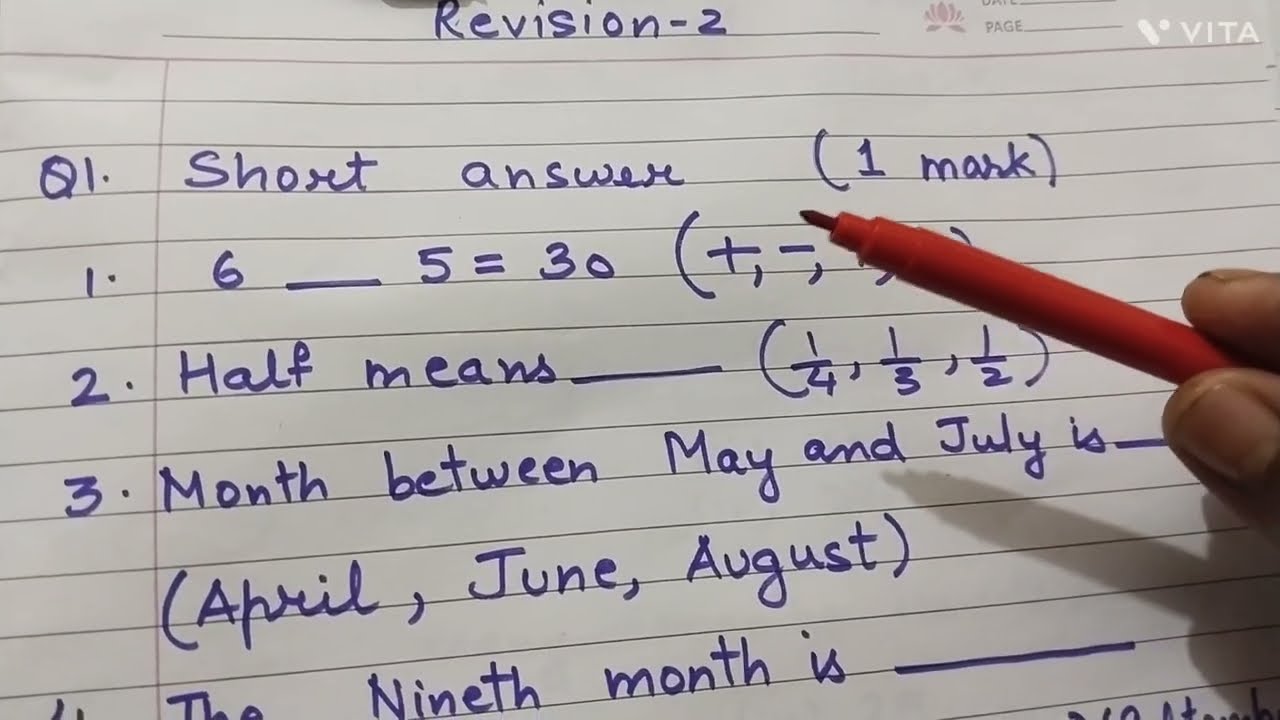 Revision-2
DATE
PAGE
VITA
Q1. Short answer (1 mark)
1. 6 ___ 5 = 30 (+, -, , )
2. Half means ___ (1/4, 1/3, 1/2)
3. Month between May and July is ___
(April, June, August)
4. The Nineth month is ___